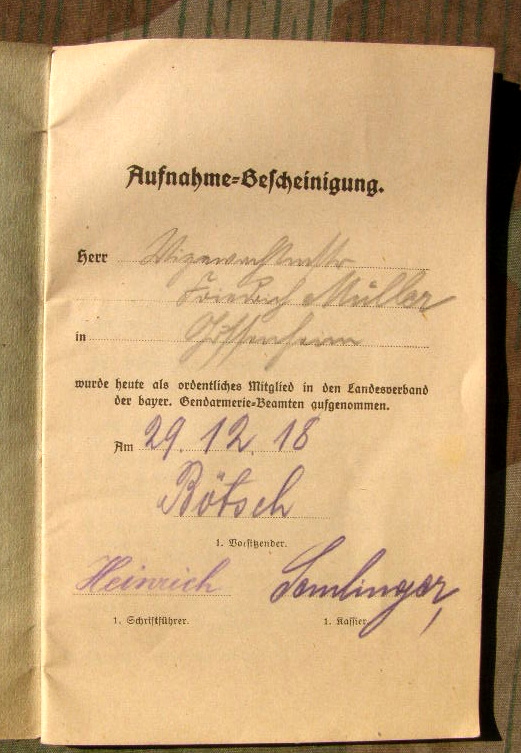 Aufnahme-Bescheinigung.
Herr Vizewachtmstr
Friedrich Müller
in
wurde heute als ordentliches Mitglied in den Landesverband
der bayer. Gendarmerie-Beamten aufgenommen.
Am 29.12.18
Bötsch
1. Vorsitzender.
Heinrich Semlinger
1. Schriftführer. 1. Kassier.